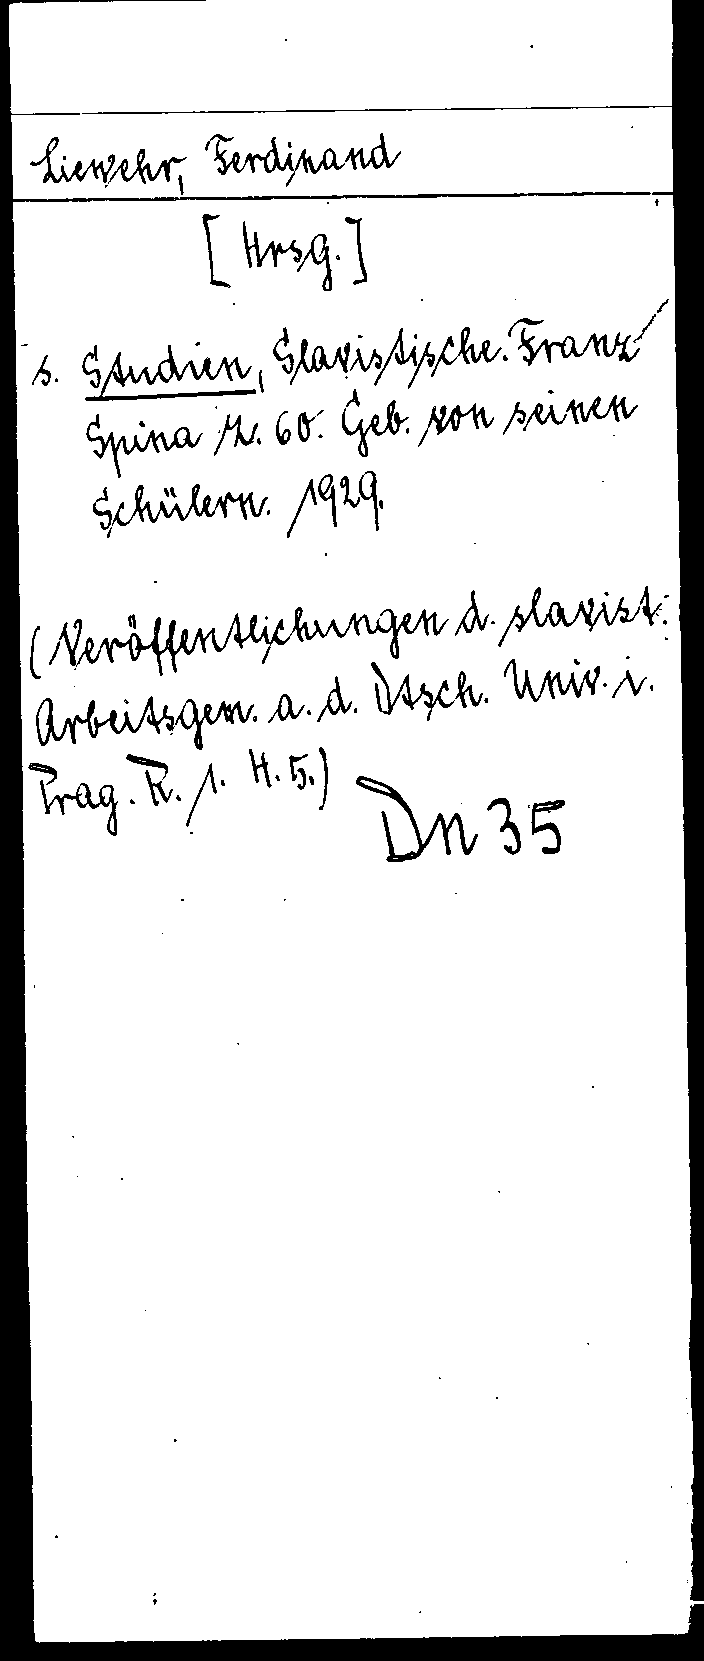 Liewehr, Ferdinand
[Hrsg.]
s. Studien, Slavistische. Franz
Spina z. 60. Geb. von seinen
Schülern. 1929.
(Veröffentlichungen d. slavist.
Arbeitsgem. a. d. Dtsch. Univ. i.
Prag. R. 1. H. 5.)
Dn 35